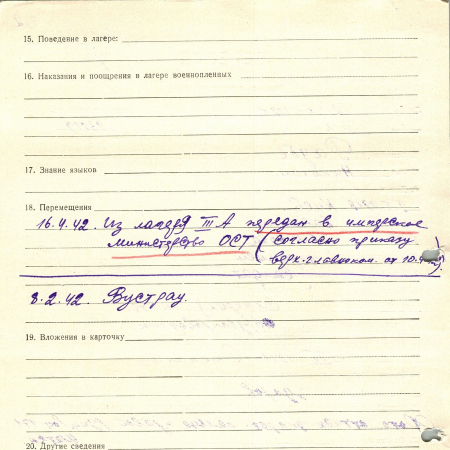 15. Поведение в лагере:
16. Наказания и поощрения в лагере военнопленных
17. Знание языков
18. Перемещения
16.4.42. Из лагеря III А передан в имперское
министерство ОСТ (согласно приказу
верх. главноком. от 10.4
8.2.42. Вустрау.
19. Вложения в карточку
20. Другие сведения